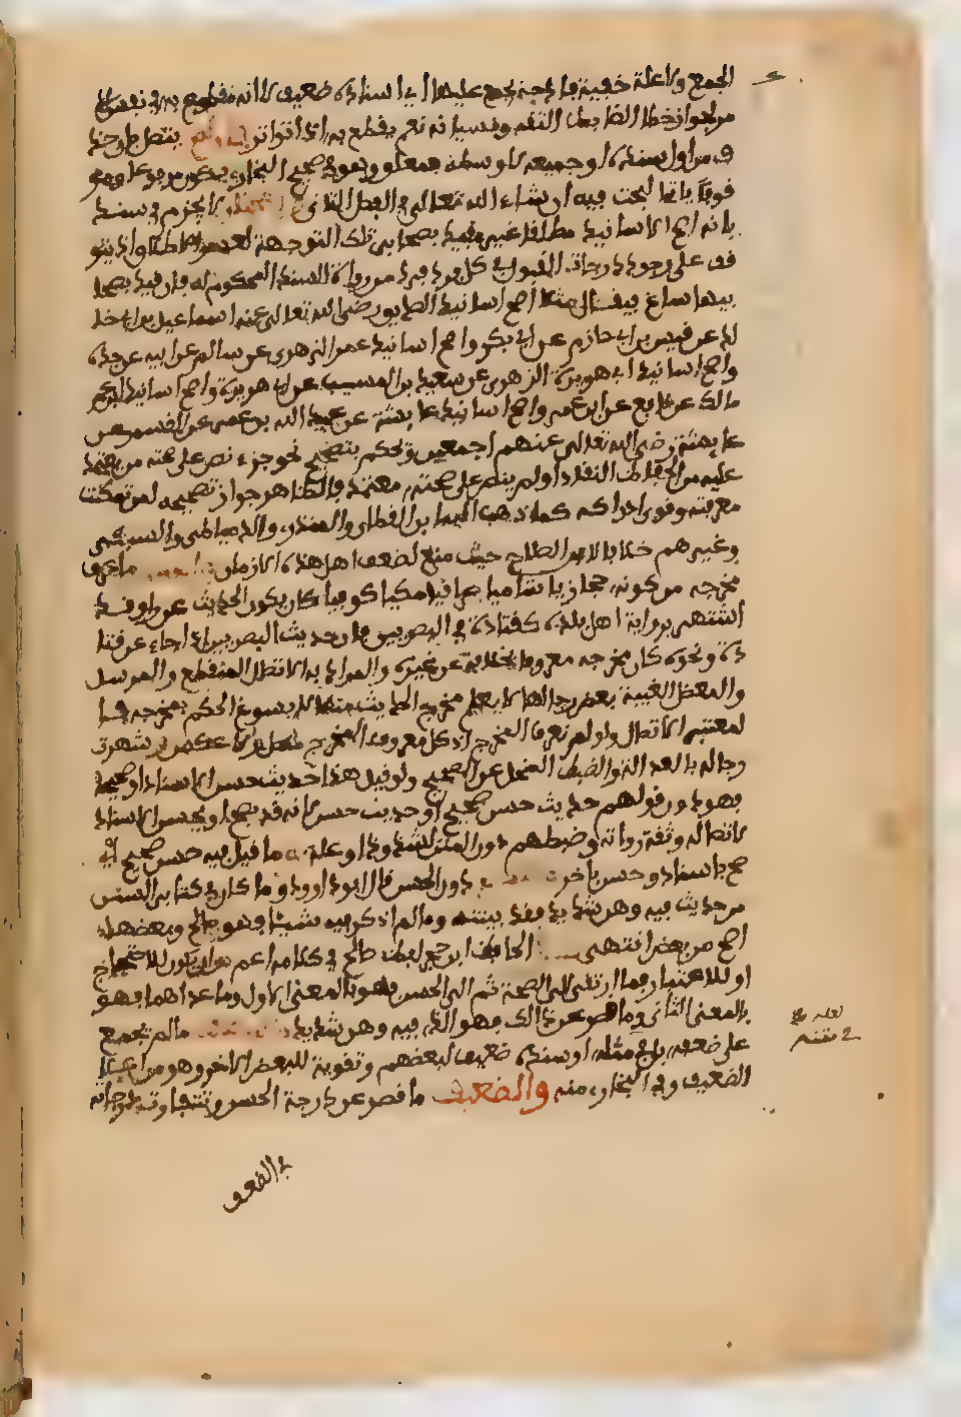 المجمع ولا علة خفية قادحة مجمع عليها اي اسناده ضعيف لا انه مقطوع به في نفس
لجواز خطا الضابط الثقة ونسيانه نعم يقطع به اذا تواتر يتصل وحذ
ف من اول سنده او جميعه لا وسطه فمعلق وهو في صحيح البخاري يكون مرفوعا وموقو
فوفا ياتي البحث فيه ان شاء الله تعالى في الفصل الثاني لا يجزم في سند
بانه اصح الاسانيد مطلقا غير مقيد بصحابي تلك الترجمة لعسر الاطلاق اذ يتو
قف على وجود درجات القبول في كل فرد فرد من رواة السند المحكوم له فان قيد بصحا
بيها ساغ فيقال مثلا اصح اسانيد الصديق رضي الله تعالى عنه اسماعيل بن ابي خا
لد عن قيس بن ابي حازم عن ابي بكر واصح اسانيد عمر الزهري عن سالم عن ابيه عن جده
واصح اسانيد ابي هريرة الزهري عن سعيد بن المسيب عن ابي هريرة واصح اسانيد ابن عمر
مالك عن نافع عن ابن عمر واصح اسانيد عايشة عن عبيد الله بن عمر عن القسم عن
عايشة رضي الله تعالى عنهم اجمعين ويحكم بتصحيح نحو جزء نص على صحته من يعتمد
عليه من الحفاظ النقاد او لم ينص على صحته معتمد فالظاهر جواز تصحيحه لمن تمكنت
معرفته وقوي ادراكه كما ذهب اليه ابن القطان والمنذري والدمياطي والسبكي
وغيرهم خلافا لابن الصلاح حيث منع لضعف اهل هذه الازمان ما عرف
مخرجه من كونه حجازيا شاميا عراقيا مكيا كوفيا كان يكون الحديث عن راو قد
اشتهر برواية اهل بلده كقتادة في البصريين فان حديث البصريين اذا جاء عن قتا
دة ونحوه كان مخرجه معروفا بخلافه عن غيره والمراد به الاتصال فالمنقطع والمرسل
والمعضل لغيبة بعض رجالها لا يعلم مخرج الحديث منها لا يسوغ الحكم بمخرجه
لمعتبر الاتصال ولو لم نعرف المخرج اذ كل معروف المخرج متصل ولا عكس وشهرت
رجاله بالعدالة والضبط المنحط عن الصحيح ولو قيل هذا حديث حسن الاسناد او صحيحه
فهو دون قولهم حديث حسن صحيح او حديث حسن لانه قد يصح او يحسن الاسناد
لاتصاله وثقة رواته وضبطهم دون المتن لشذوذ او علة وما قيل فيه حسن صحيح اي
صح باسناد وحسن باخر دون الحسن قال ابو داوود وما كان في كتابي السنن
من حديث فيه وهن شديد فقد بينته وما لم اذكر فيه شيئا فهو صالح وبعضها
اصح من بعض انتهى الحافظ ابن حجر لفظ صالح في كلامه اعم من ان يكون للاحتجاج
او للاعتبار فما ارتقى الى الصحة ثم الى الحسن فهو بالمعنى الاول وما عداهما فهو
بالمعنى الثاني وما قصر عن ذلك فهو الذي فيه وهن شديد ما لم يجمع
على ضعفه بل في متنه او سنده ضعيف لبعضهم وتقوية للبعض الاخر وهو من اعلا
الضعيف وفي البخاري منه والضعيف ما قصر عن درجة الحسن وتتفاوت درجاته
في الضعف